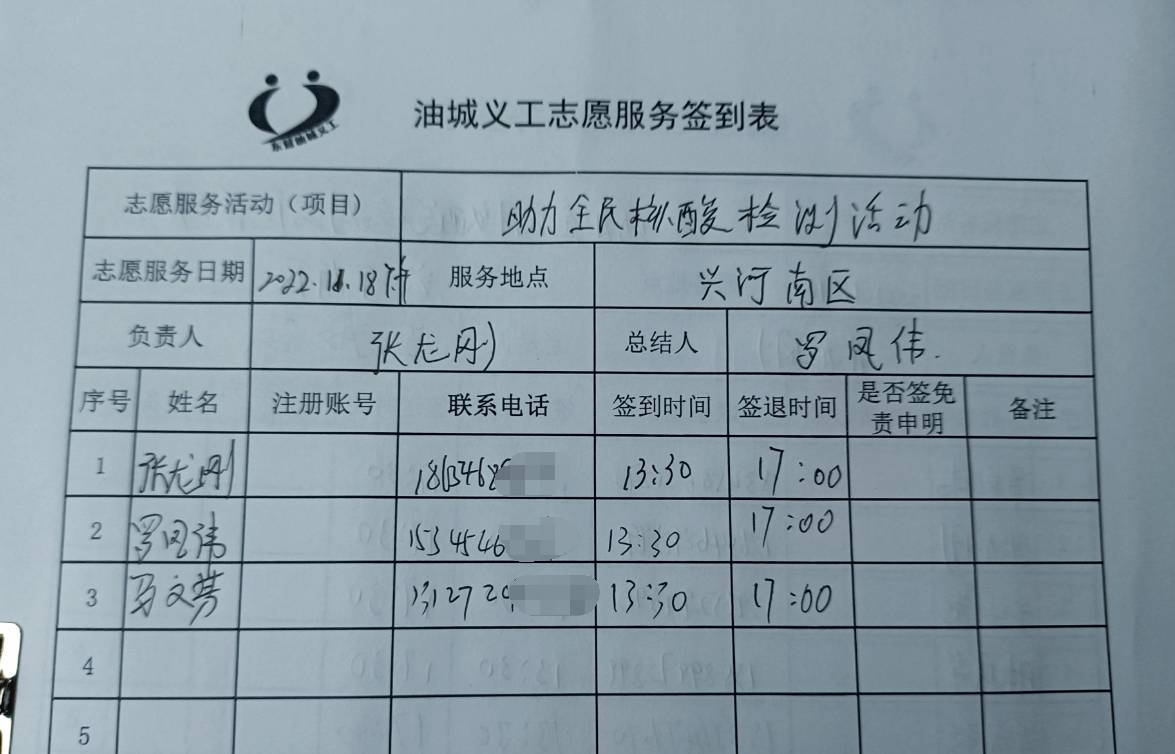 东营油城义工
油城义工志愿服务签到表
志愿服务活动（项目） 助力全民核酸检测活动
志愿服务日期 2022.11.18下午 服务地点 兴河南区
负责人 张龙刚 总结人 罗凤伟.
序号 姓名 注册账号 联系电话 签到时间 签退时间 是否签免 备注
责申明
1 张龙刚 1865468 13:30 17:00
2 罗凤伟 1534546 13:30 17:00
3 马文芳 132729 13:30 17:00
4
5